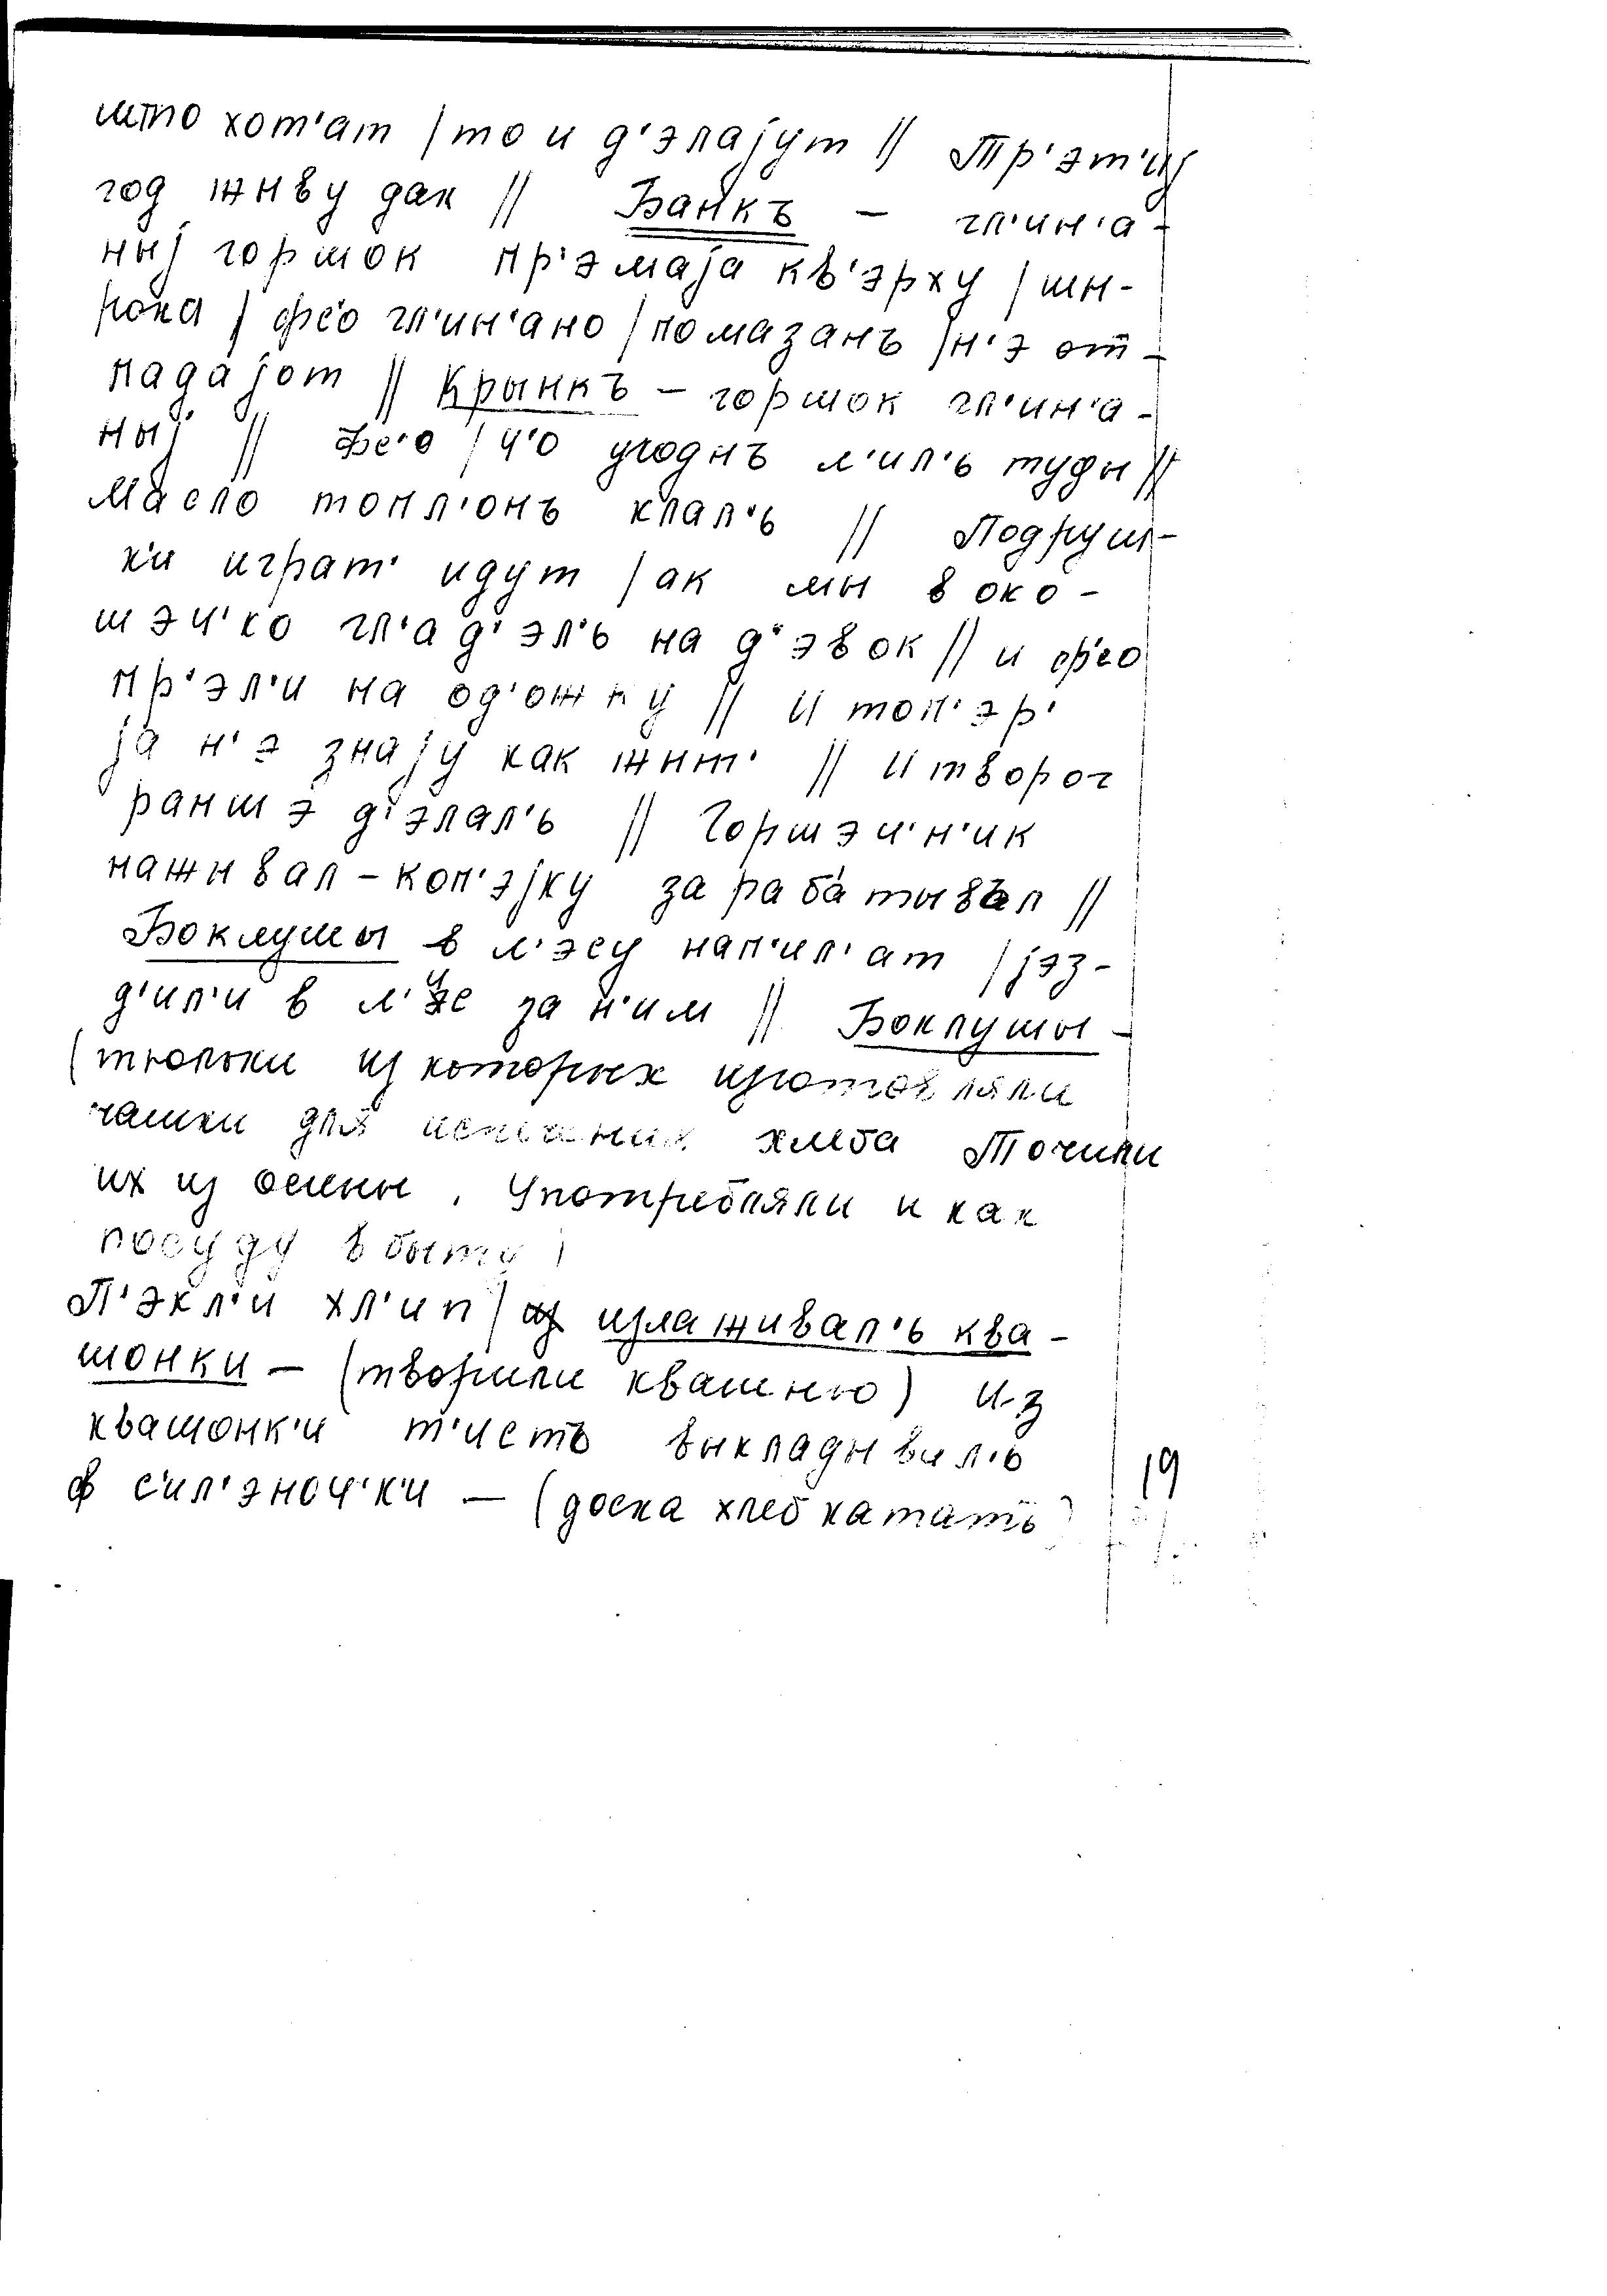 што хот'ат / то и д'элаjут // Тр'эт'иj
год жыву дак // Банкъ – гл'ин'а-
ныj горшок пр'эмаjа кв'эрху / шы-
рока / фс'о гл'ин'ано / помазанъ / н'э от-
падаjот // Крынкъ – горшок гл'ин'а-
ныj // Фс'о / ч'о угоднъ л'ил'ь туды //
Масло топл'онъ клал'ь // Подруш-
к'и играт' идут / ак мы в око-
шэч'ко гл'ад'эл'ь на д'эвок // и фс'о
пр'эл'и на од'ожку // И топ'эр'
jа н'э знаjу как жыт' // И творог
раншэ д'элал'ь // Горшэч'н'ик
нажывал – коп'эjку зарабáтывъл //
Боклушы в л'эсу нап'ил'ат / jэз-
д'ил'и в л'ис за н'им // Боклушы –
(тюльки из которых изготовляли
чашки для испечения хлеба Точили
их из осины. Употребляли и как
посуду в быту)
П'экл'и хл'ип / излаживал'ь ква-
шонки – (творили квашню) из
квашонк'и т'истъ выкладывал'ь
ф с'ил'эноч'к'и – (доска хлеб катать)
19